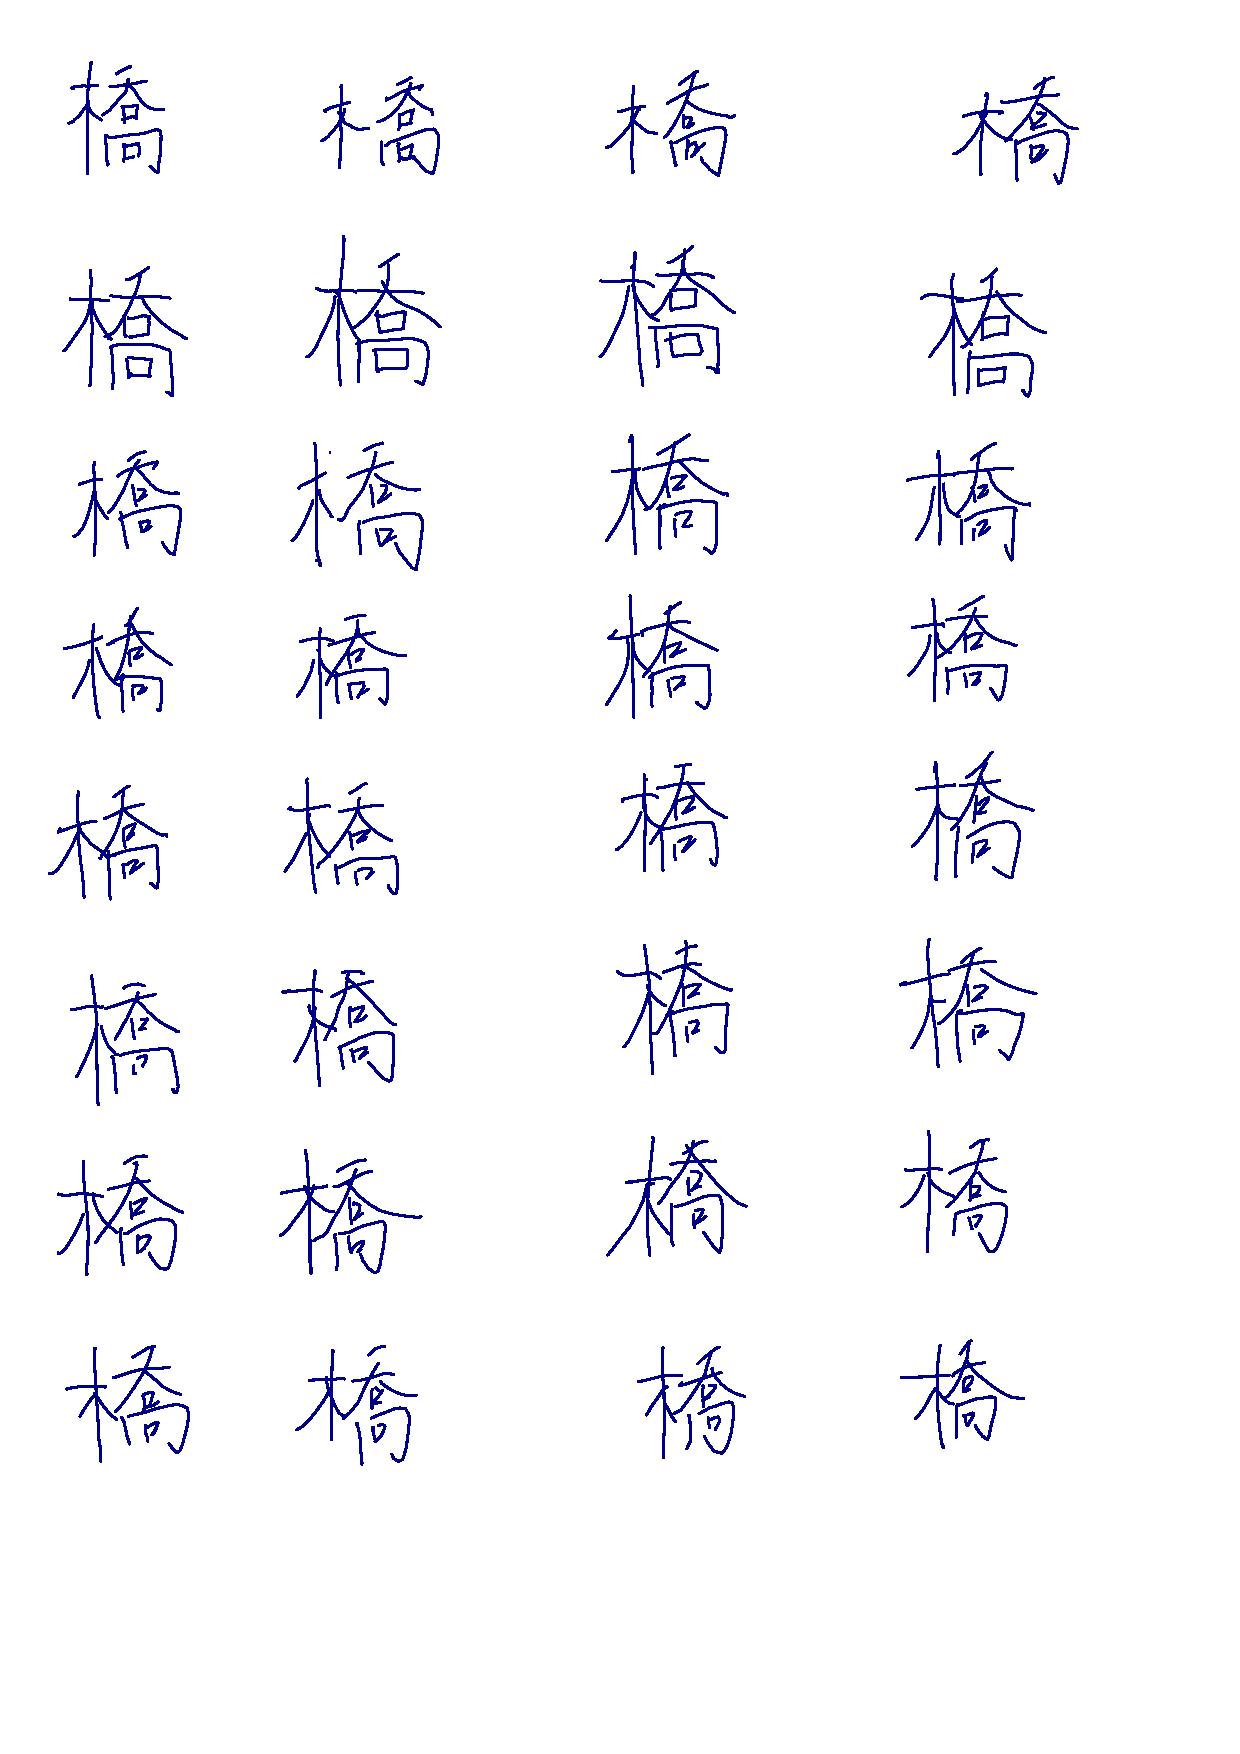 橋 橋 橋 橋
橋 橋 橋 橋
橋 橋 橋 橋
橋 橋 橋 橋
橋 橋 橋 橋
橋 橋 橋 橋
橋 橋 橋 橋
橋 橋 橋 橋